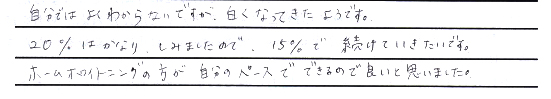 自分ではよくわからないですが、白くなってきたようです。
20%はかなりしみましたので、15%で続けていきたいです。
ホームホワイトニングの方が自分のペースでできるので良いと思いました。